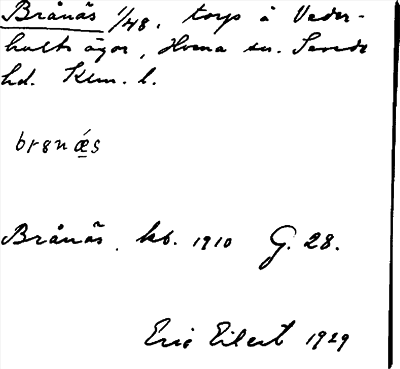 Brånäs 1/48, torp å Veder-
hults ägor, Horna sn. Sevede
hd. Klm. l.
brɵnǽs
Brånäs. kb. 1910 G. 28.
Eric Eilert 1929